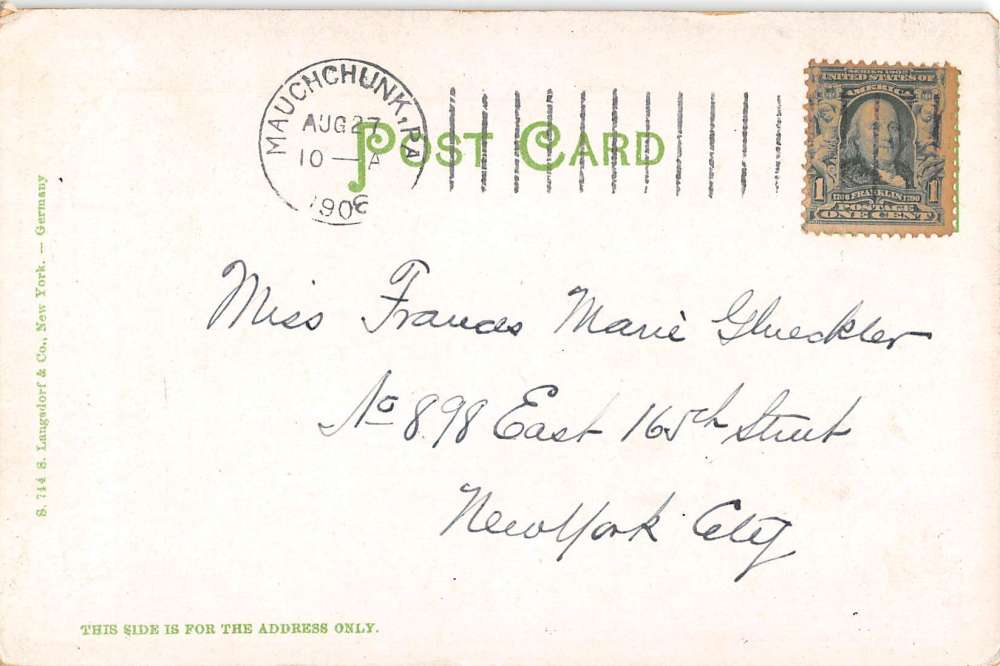 MAUCHCHUNK, PA
AUG 27
10 — A
1906
POST CARD
SERIES 1902
UNITED STATES OF
AMERICA
1 FRANKLIN 1
POSTAGE
ONE CENT
Miss Frances Marie Glueckler
No 898 East 165th Street
New York City
S. 744 S. Langsdorf & Co., New York. — Germany
THIS SIDE IS FOR THE ADDRESS ONLY.